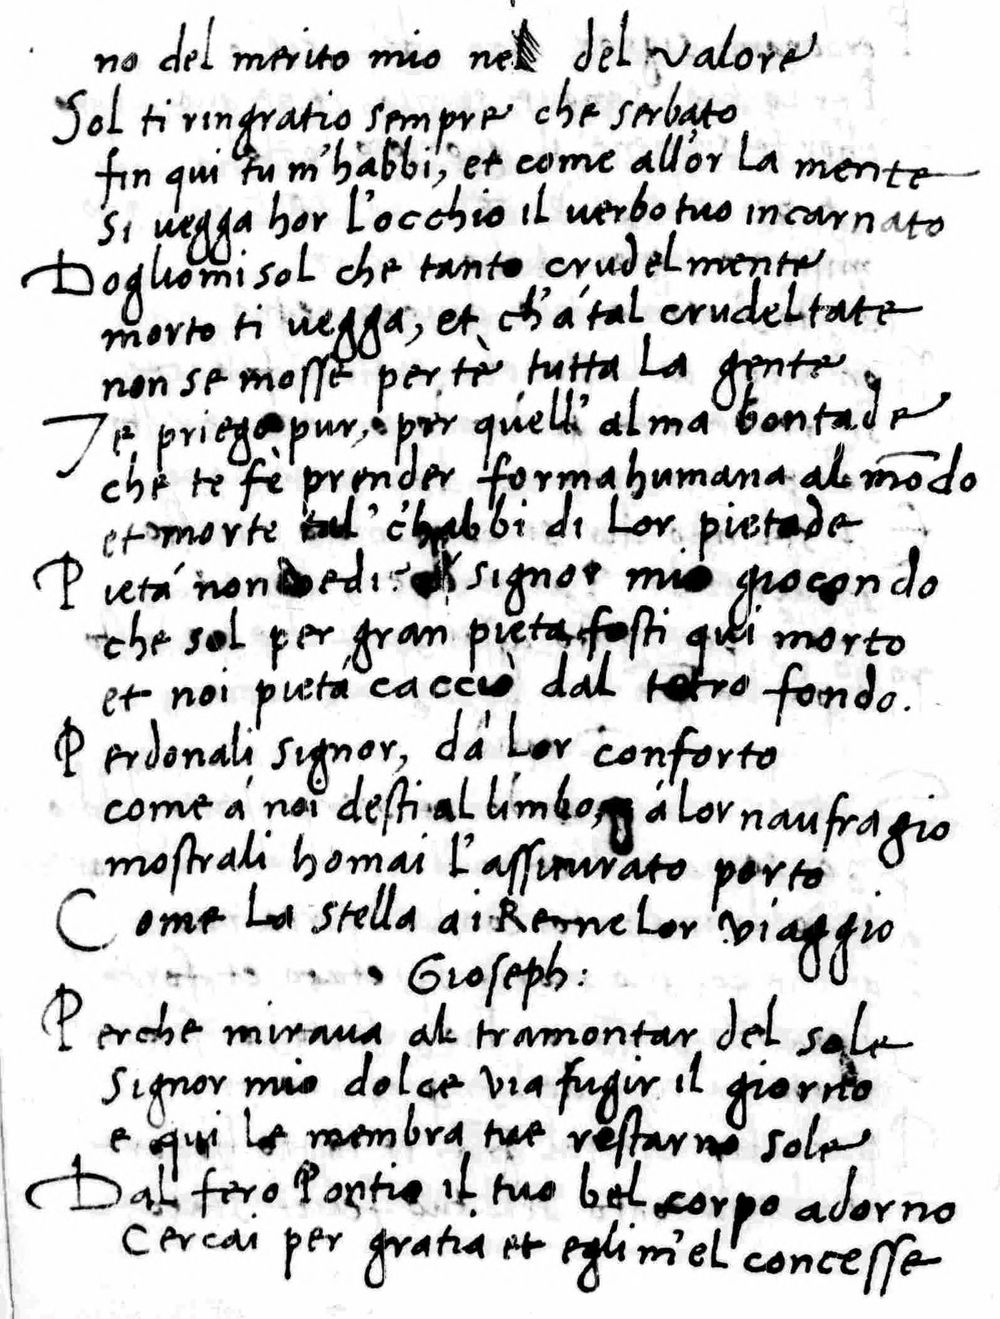 no del merito mio nel del valore
Sol ti ringratio sempre che serbato
fin qui tu m'habbi, et come all'or la mente
si uegga hor l'occhio il uerbo tuo incarnato
Dogliomi sol che tanto crudelmente
morto ti uegga, et ch'á tal crudeltate
non se mosse per tè tutta la gente
Te priego pur, per quell' alma bontade
che te fè prender forma humana al mōdo
et morte tal' c'habbi di lor pietade
Pietá non uedi signor mio giocondo
che sol per gran pieta fosti qui morto
et noi pietá cacciò dal tetro fondo.
Perdonali signor, dá lor conforto
come á noi desti al limbo, á lor naufragio
mostrali homai l'assicurato porto
Come la stella ai Re nel lor viaggio
Gioseph:
Perche miraua al tramontar del sole
signor mio dolce via fugir il giorno
e qui le membra tue restarno sole
Dal fero Pontio il tuo bel corpo adorno
Cercai per gratia et egli m'el concesse